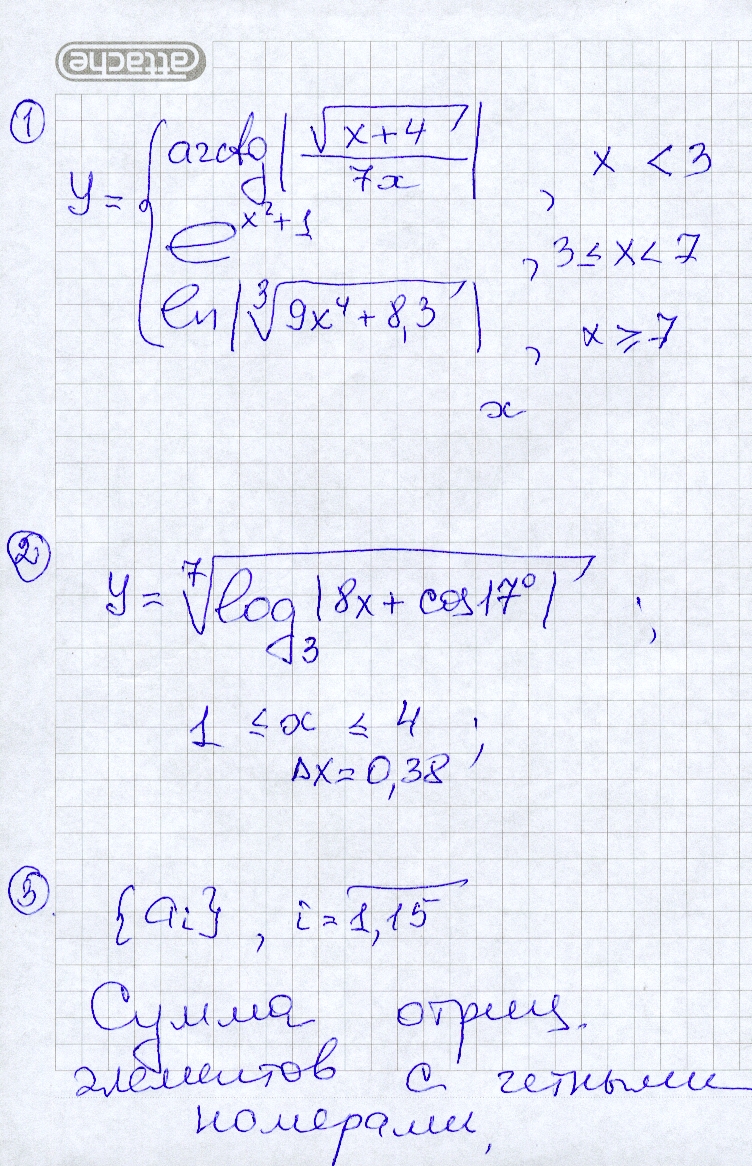 attache
① y = { arctg |√(x+4) / 7x| , x < 3
e^(x²+1) , 3 ≤ x < 7
ln |∛(9x⁴ + 8,3)| , x ≥ 7
x
② y = ⁷√(log₃ |8x + cos 17°|) ;
1 ≤ x ≤ 4 ;
Δx = 0,38
③ {aᵢ} , i = 1,15
Сумма отриц.
элементов с четными
номерами,